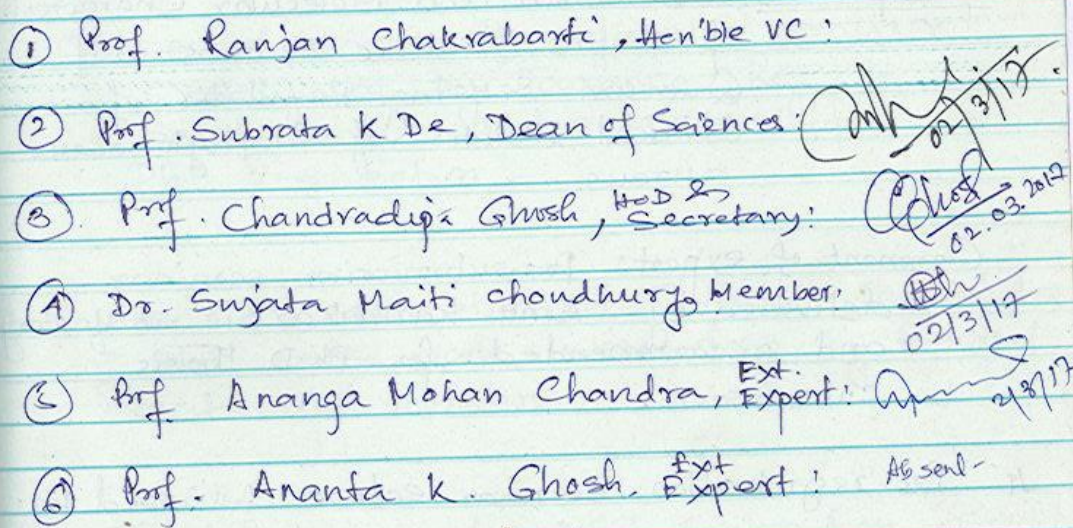 ① Prof. Ranjan Chakrabarti, Hon'ble VC:
② Prof. Subrata K De, Dean of Sciences: 02/3/17
③. Prof. Chandradipa Ghosh, HoD & Secretary: Ghosh 02.03.2017
④ Dr. Sujata Maiti Choudhury, Member: 02/3/17
⑤ Prof. Ananga Mohan Chandra, Ext. Expert: 2/3/17
⑥ Prof. Ananta K. Ghosh, Ext Expert: Absent